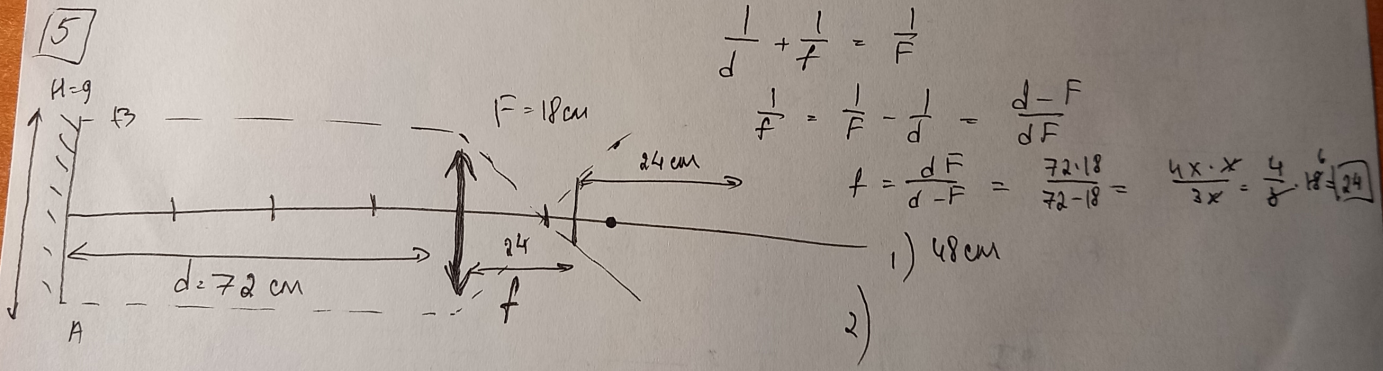 5
H=9
B
F=18см
24 см
24
d=72 см
f
A
1/d + 1/f = 1/F
1/f = 1/F - 1/d = d-F/dF
f = dF/d-F = 72·18/72-18 = 4x·x/3x = 4/3 · 18 6 = 24
1) 48см
2)